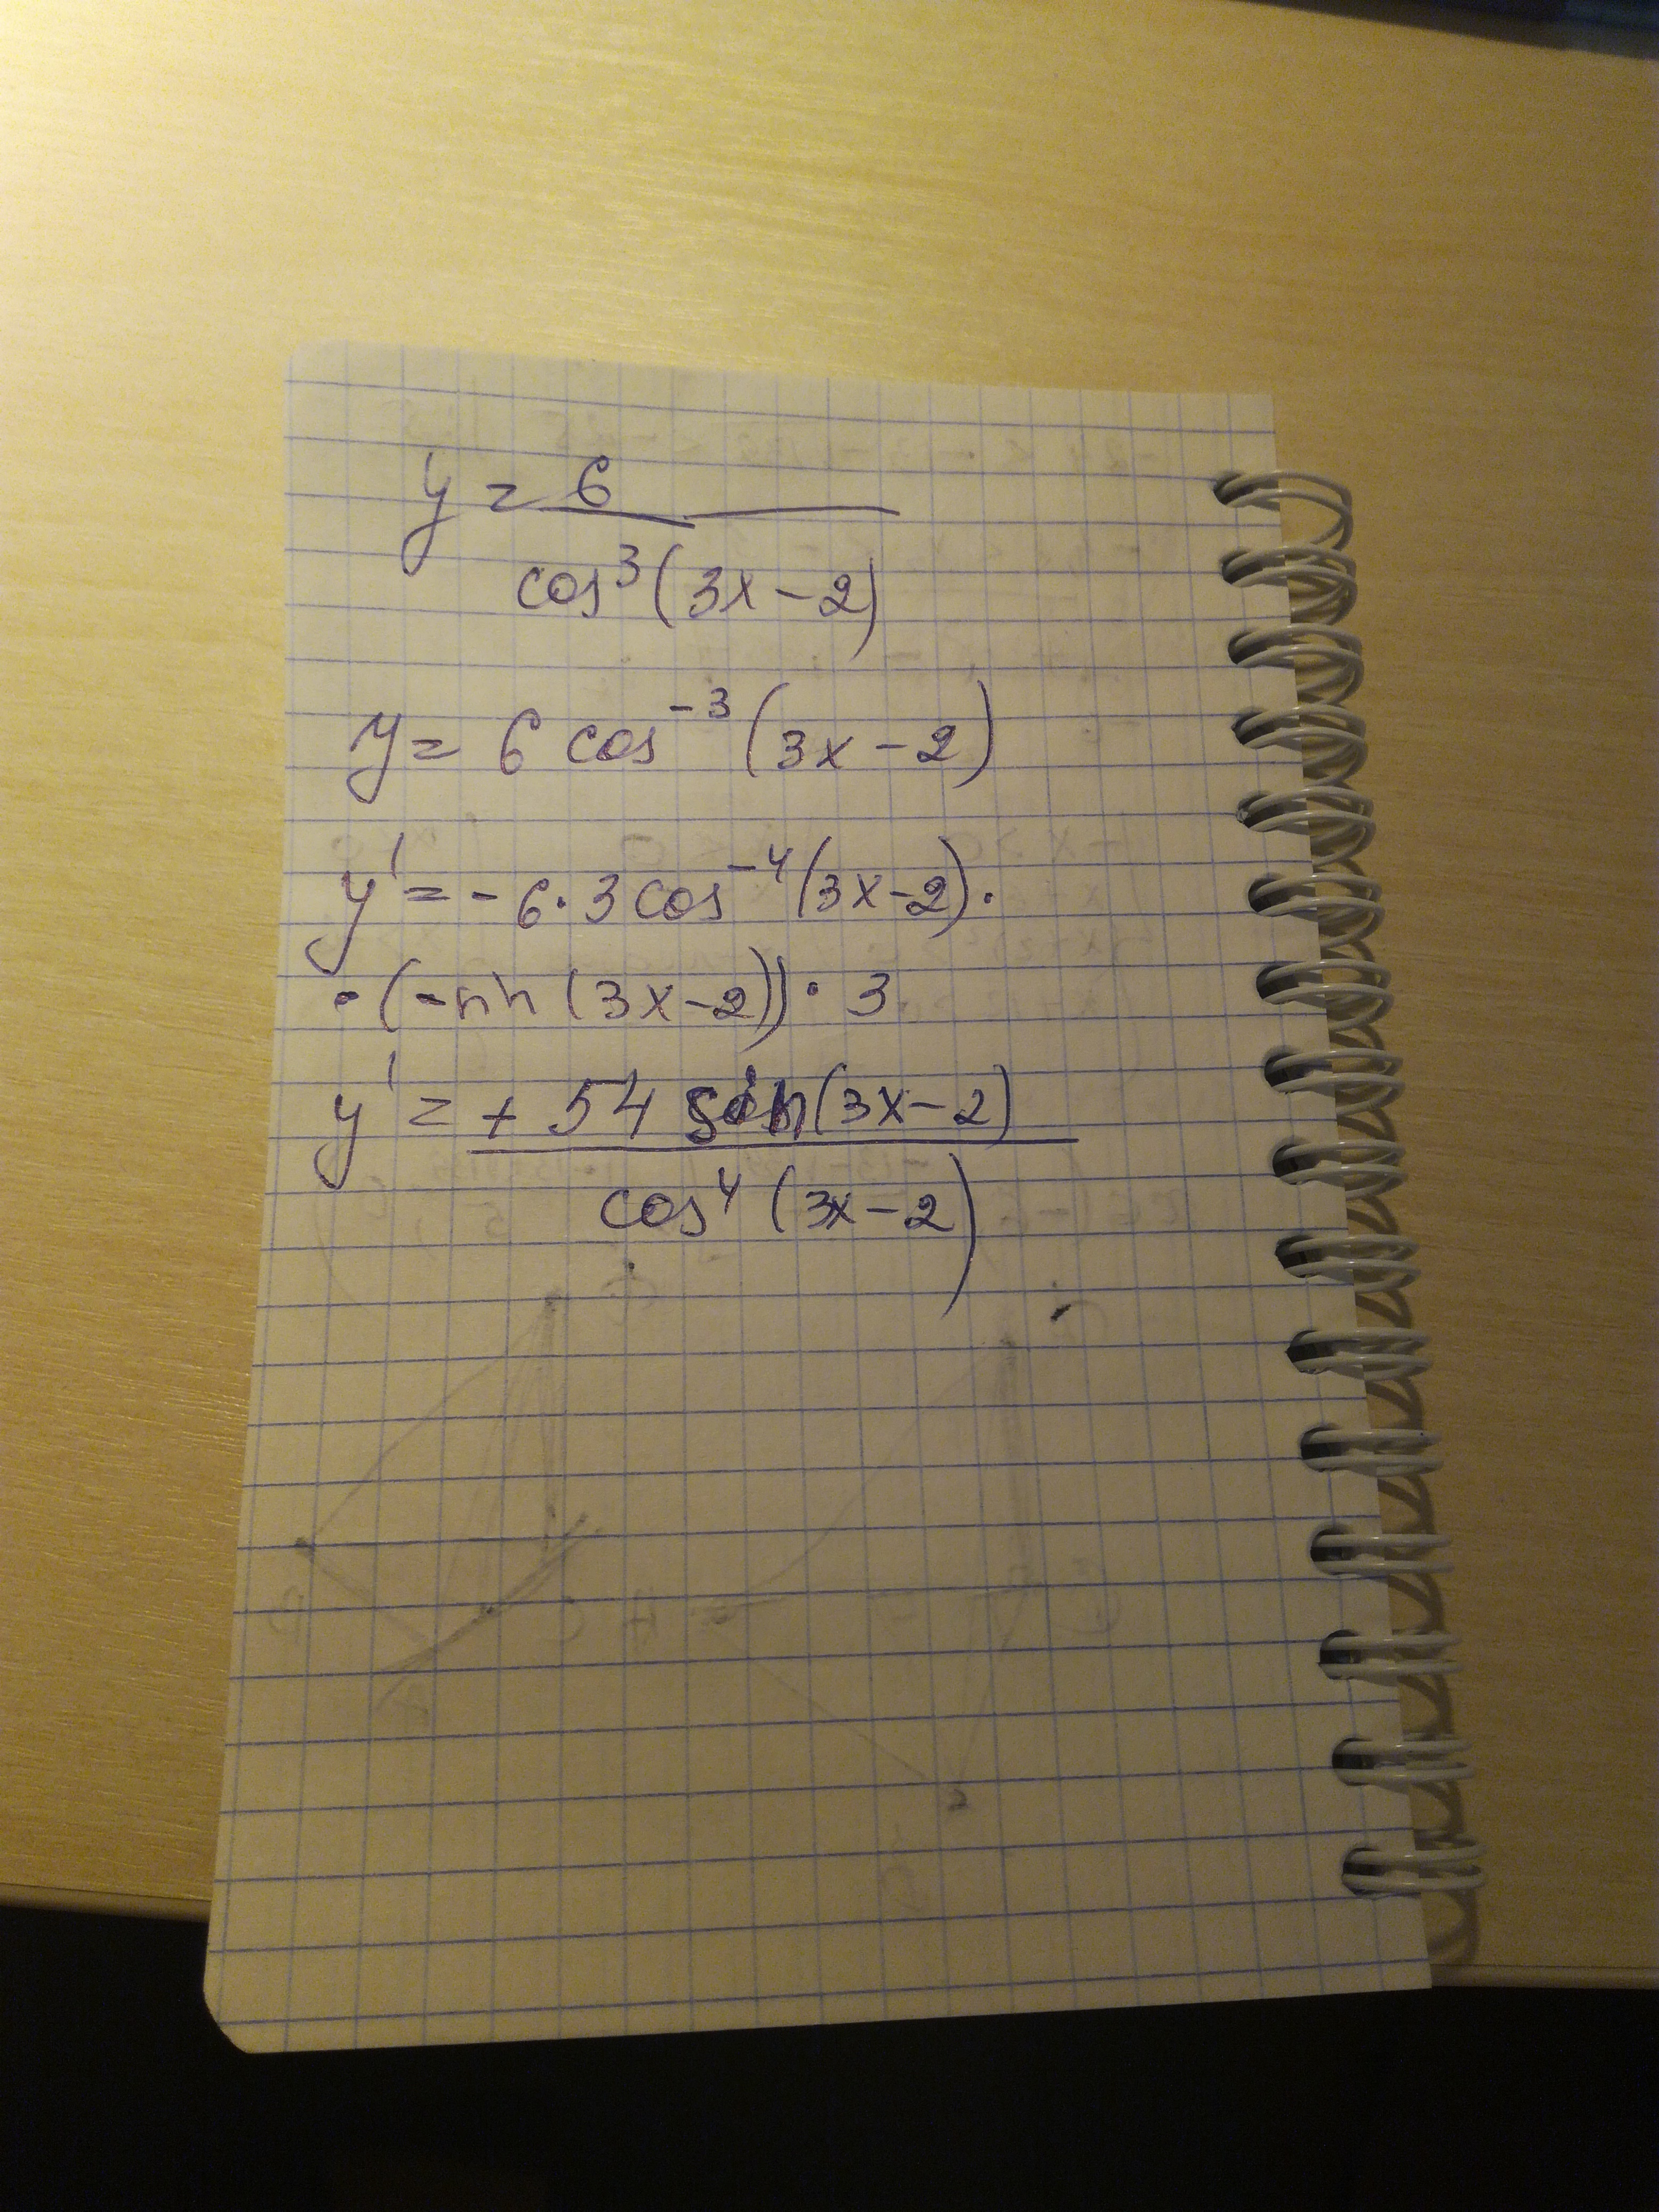 y = 6
cos³(3x-2)
y = 6 cos⁻³(3x-2)
y' = - 6·3 cos⁻⁴(3x-2)·
·(-sin(3x-2))·3
y' = + 54 sin(3x-2)
cos⁴(3x-2)